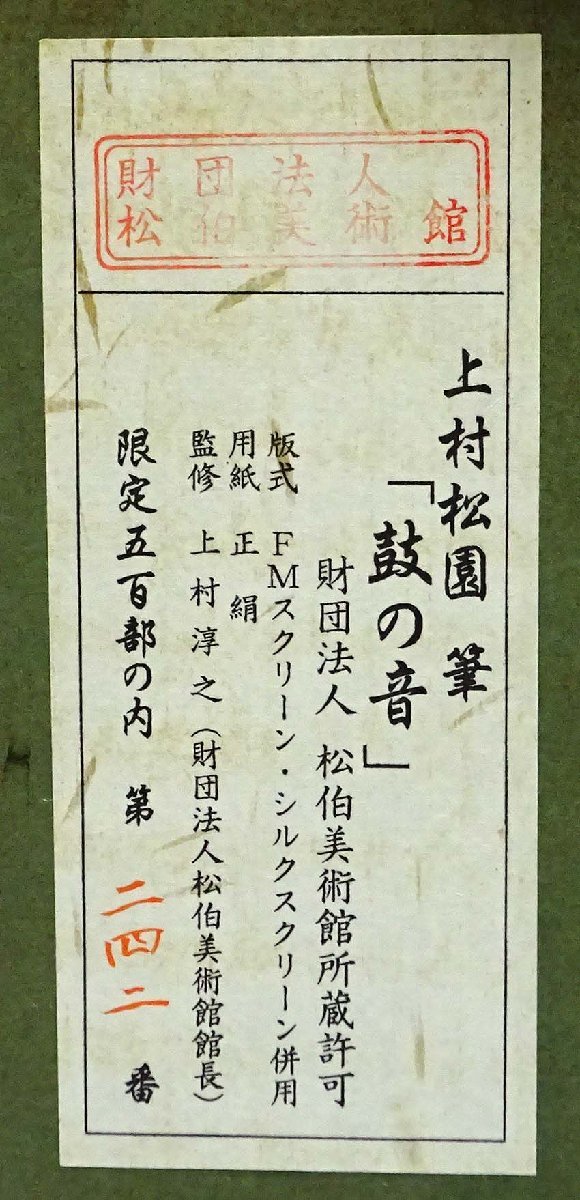 財団法人
松伯美術館
上村松園 筆
「鼓の音」
財団法人 松伯美術館所蔵許可
版式 FMスクリーン・シルクスクリーン併用
用紙 正絹
監修 上村淳之(財団法人松伯美術館館長)
限定五百部の内 第 二四二 番